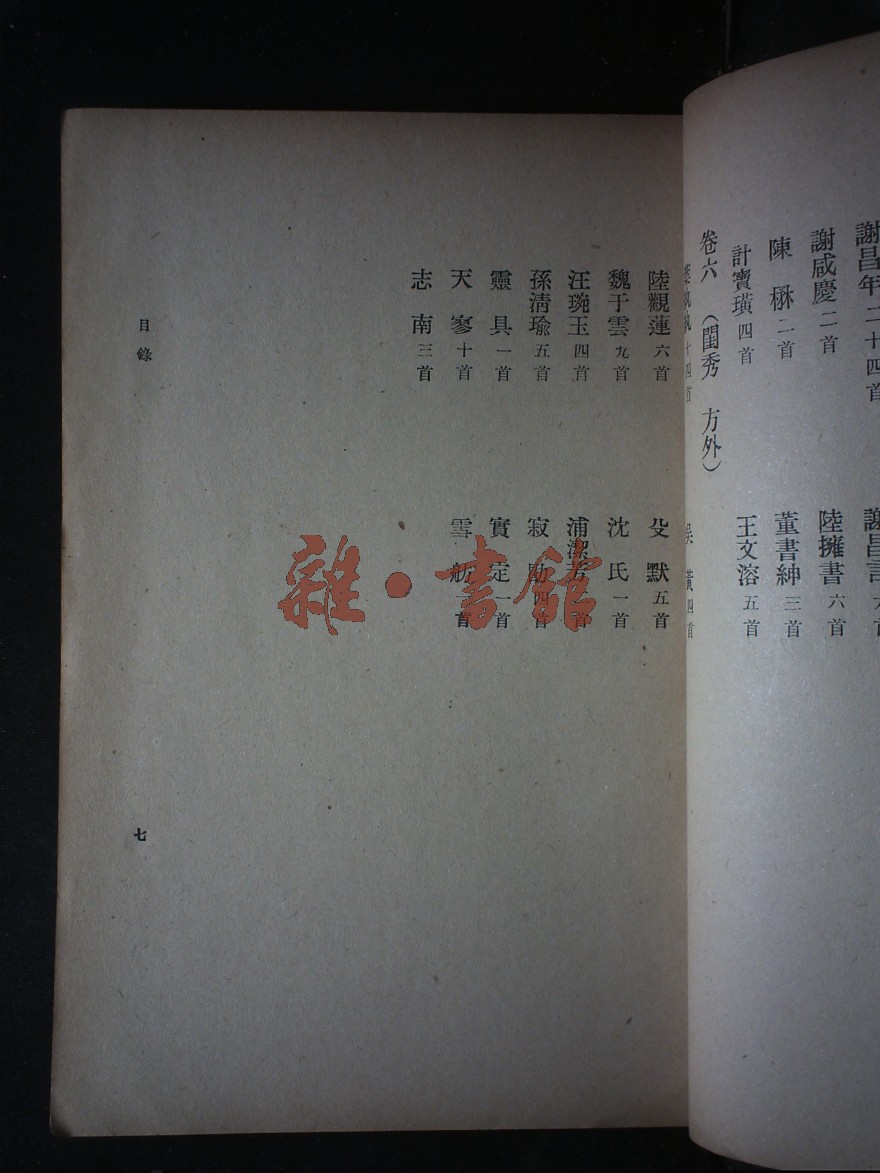 謝昌年 二十四首
謝昌言
謝咸慶 二首
陸擁書 六首
陳楙 二首
董書紳 三首
計寶璜 四首
王文溶 五首
卷六（閨秀 方外）
十四首
吳黃 四首
陸觀蓮 六首
殳默 五首
魏于雲 九首
沈氏 一首
汪琬玉 四首
浦潔芳 首
孫淸瑜 五首
寂勛 四首
靈具 一首
實定 一首
天寥 十首
雪舫 一首
志南 三首
目錄
七
雜·書館